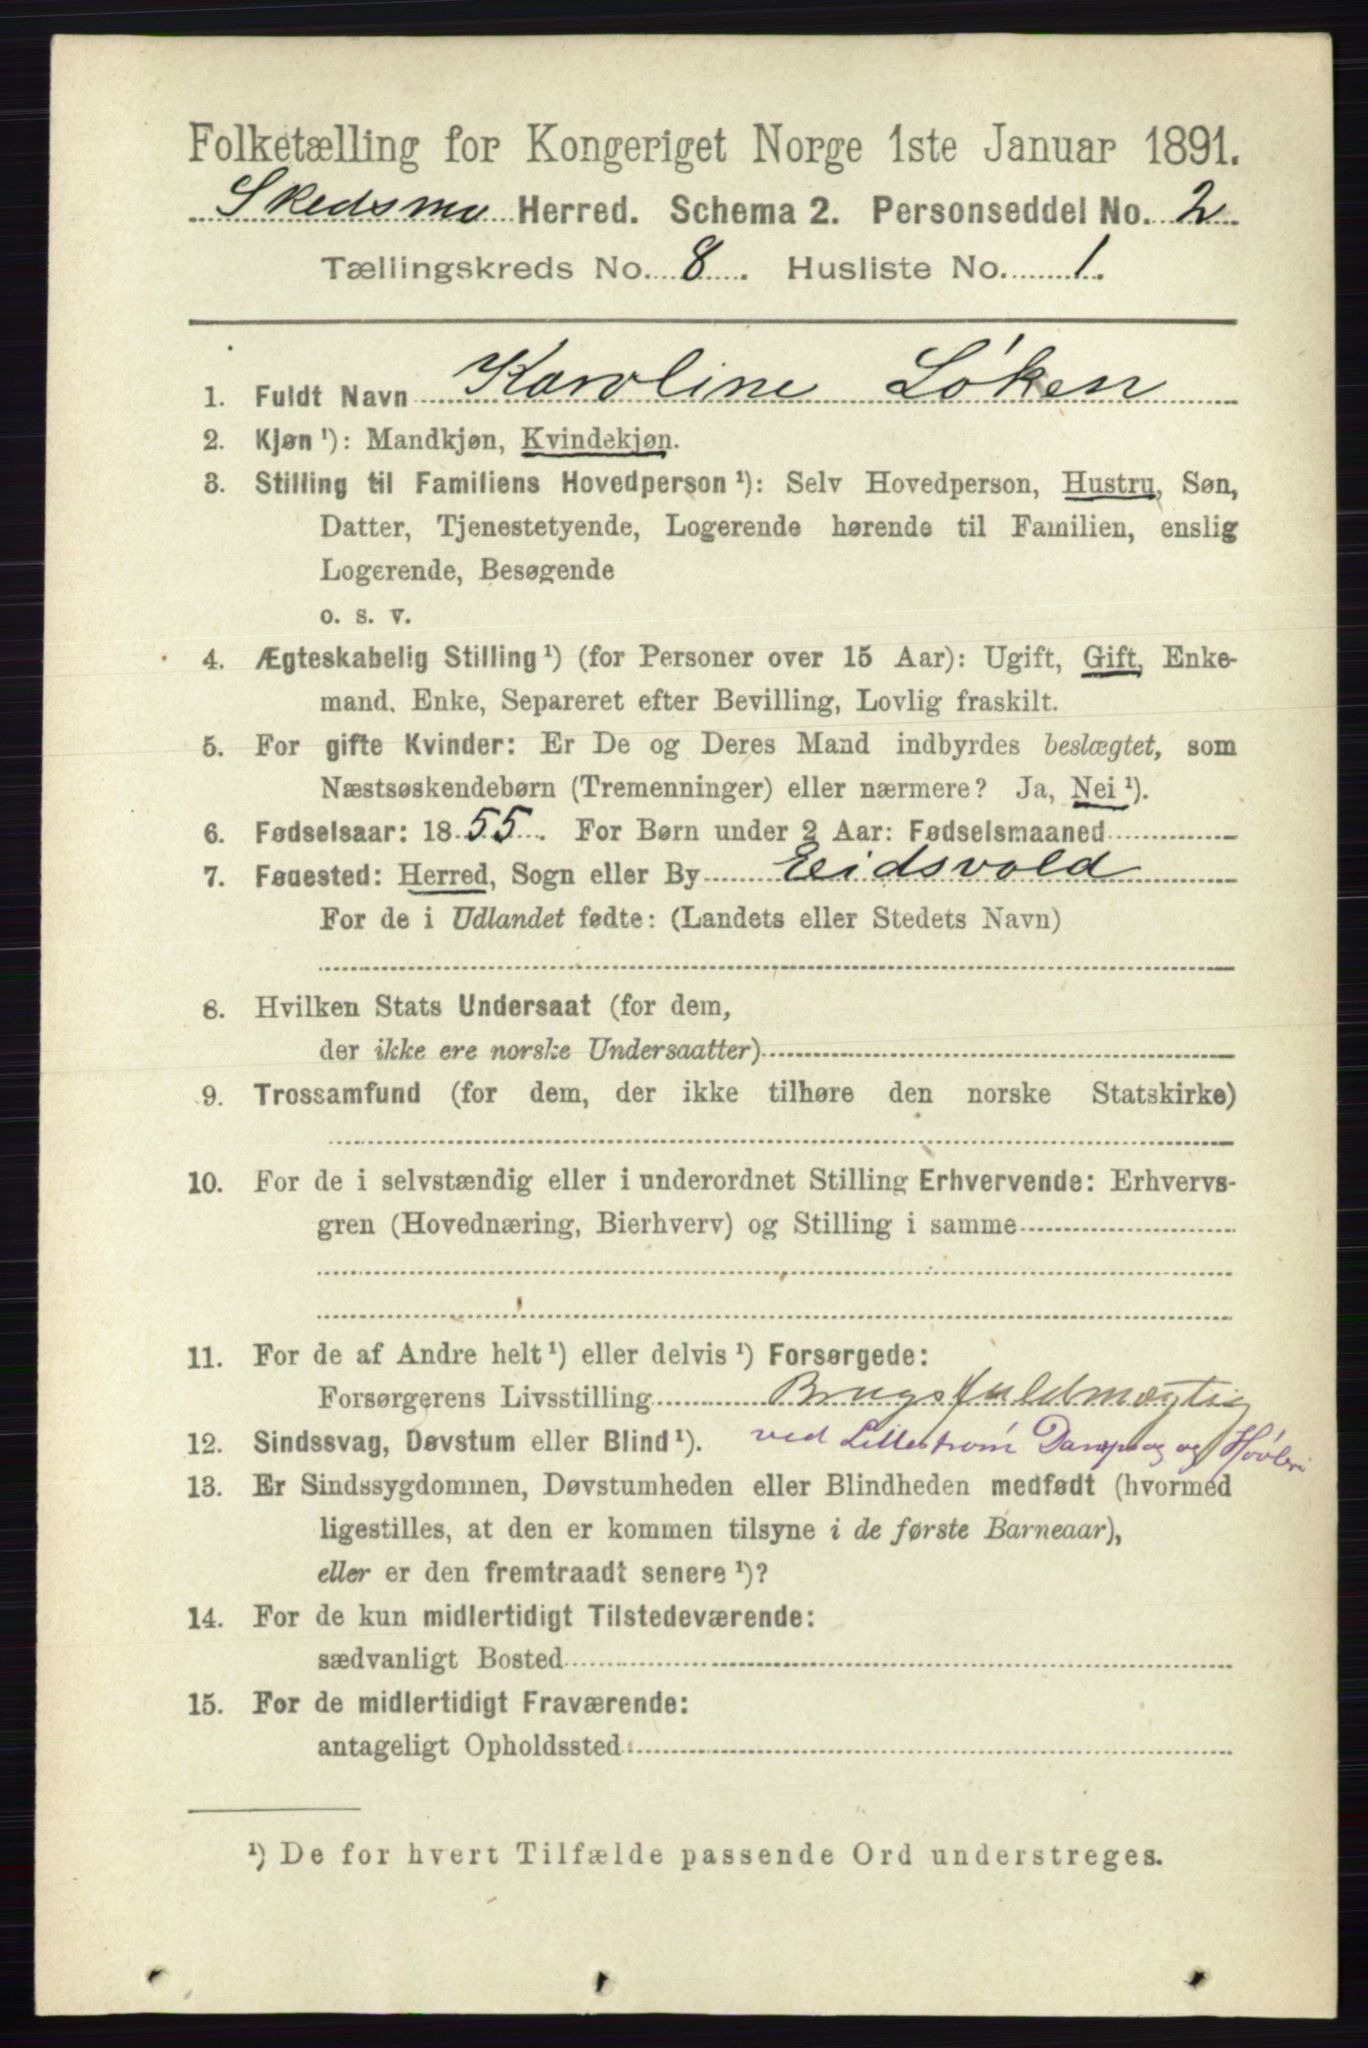 Folketælling for Kongeriget Norge 1ste Januar 1891.
Skedsmo Herred. Schema 2. Personseddel No. 2
Tællingskreds No. 8. Husliste No. 1.
1. Fuldt Navn Karoline Löken
2. Kjøn ¹): Mandkjøn, Kvindekjøn.
3. Stilling til Familiens Hovedperson ¹): Selv Hovedperson, Hustru, Søn,
Datter, Tjenestetyende, Logerende hørende til Familien, enslig
Logerende, Besøgende
o. s. v.
4. Ægteskabelig Stilling ¹) (for Personer over 15 Aar): Ugift, Gift, Enke-
mand, Enke, Separeret efter Bevilling, Lovlig fraskilt.
5. For gifte Kvinder: Er De og Deres Mand indbyrdes beslægtet, som
Næstsøskendebørn (Tremenninger) eller nærmere? Ja, Nei ¹).
6. Fødselsaar: 1855. For Børn under 2 Aar: Fødselsmaaned
7. Fødested: Herred, Sogn eller By Eidsvold
For de i Udlandet fødte: (Landets eller Stedets Navn)
8. Hvilken Stats Undersaat (for dem,
der ikke ere norske Undersaatter)
9. Trossamfund (for dem, der ikke tilhøre den norske Statskirke)
10. For de i selvstændig eller i underordnet Stilling Erhvervende: Erhvervs-
gren (Hovednæring, Bierhverv) og Stilling i samme
11. For de af Andre helt ¹) eller delvis ¹) Forsørgede:
Forsørgerens Livsstilling Brugsfuldmægtig
ved Lillestrøm Dampsag og Høvleri
12. Sindssvag, Døvstum eller Blind ¹).
13. Er Sindssygdommen, Døvstumheden eller Blindheden medfødt (hvormed
ligestilles, at den er kommen tilsyne i de første Barneaar),
eller er den fremtraadt senere ¹)?
14. For de kun midlertidigt Tilstedeværende:
sædvanligt Bosted
15. For de midlertidigt Fraværende:
antageligt Opholdssted
¹) De for hvert Tilfælde passende Ord understreges.